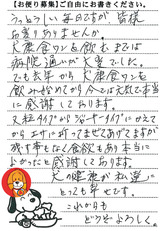 【お便り募集】ご自由にお書きください。
うっとうしい毎日ですが、皆様
お変りありませんか。
犬康食ワンを飲むまでは
病院通いが大変でした。
でも去年から犬康食ワンを
飲み始めてから今では元気で本当
に感謝しております。
又粒タイプからパウダータイプにかえて
からエサに折ってまぜてあげてますが
残す事もなく食欲もあり本当に
よかったと感謝しております。
犬の健康が私達に
とっても幸せです。
これからも
どうぞよろしく。